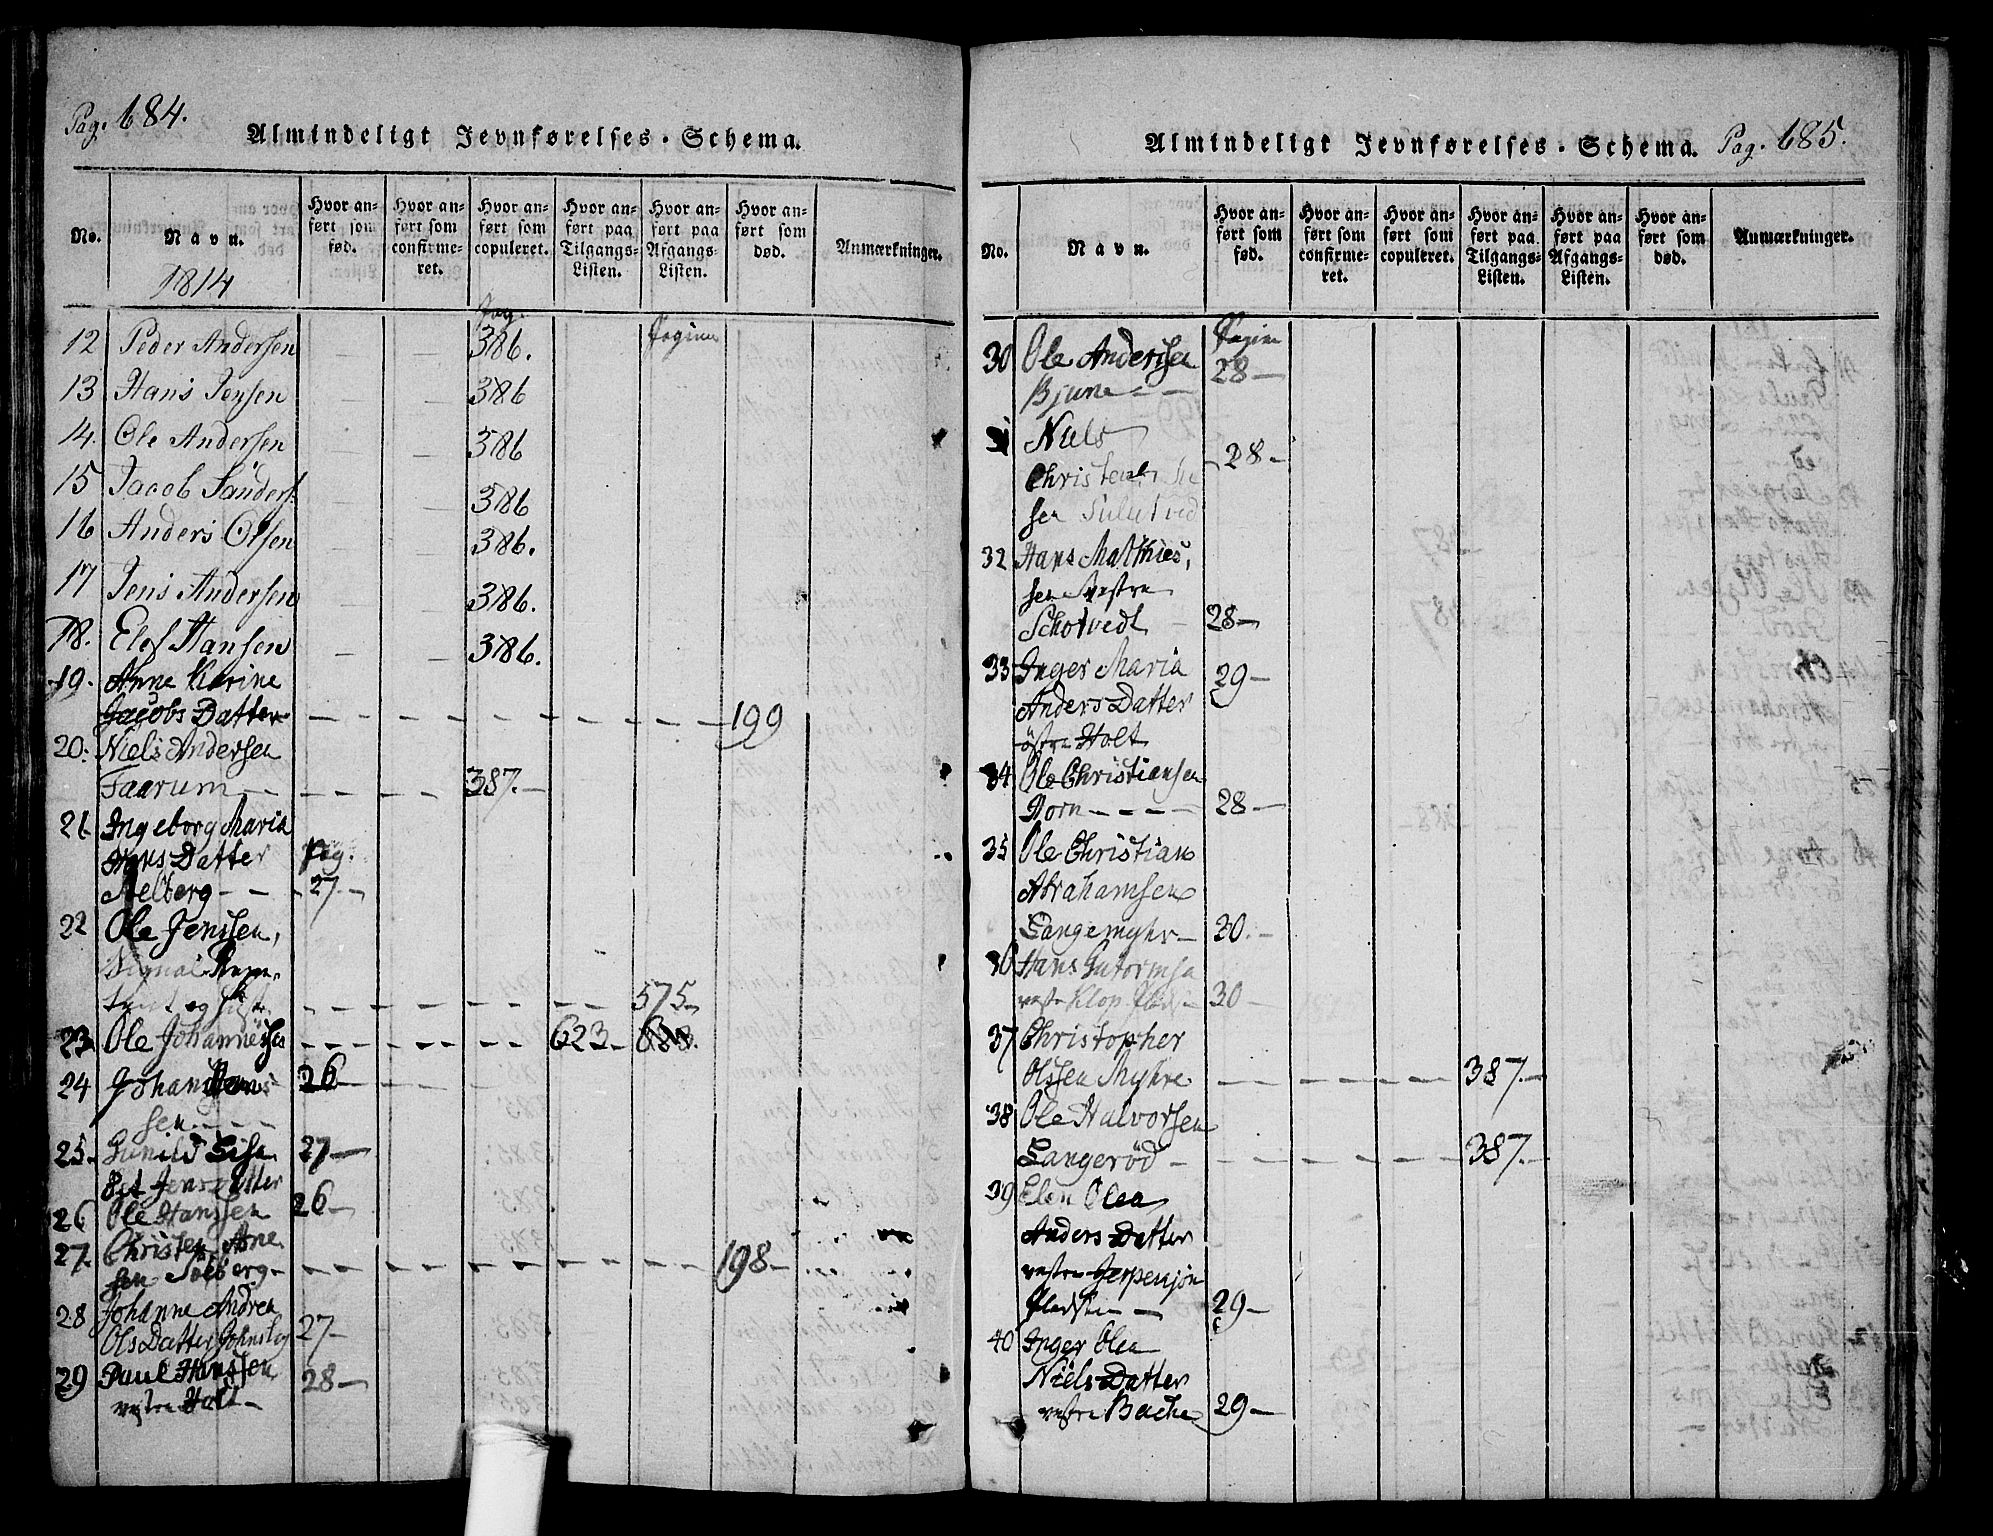 Pag. 684.
Almindeligt Jevnførelses-Schema.
No.
Navn.
Hvor anført som fød.
Hvor anført som confirmeret.
Hvor anført som copuleret.
Hvor anført paa Tilgangs-Listen.
Hvor anført paa Afgangs-Listen.
Hvor anført som død.
Anmærkninger.
1814
Pag. Pagina
12 Peder Andersen 386.
13 Hans Jensen 386
14. Ole Andersen 386
15 Jacob 386
16 Anders Olsen 386.
17 Jens Andersen 386.
18. Elof Hansen 386.
19. Anne Karine
Jacobs Datter 199
20. Niels Andersen
Faarum 387.
21 Ingeborg Maria
Hans Datter Pag.
Aelberg 27
22 Ole Jenssen,
Signal
og 575
23 Ole Johannessen 623
24 Johan 26
sen
25. Gunild Lisa 27
bet Jens Datter
26 Ole Hanssen 26
27. Christen Arne
sen Solberg 198
28 Johanne Andrea
Ols Datter 27
29 Paul Hanssen 28
vestre Holt
Almindeligt Jevnførelses-Schema. Pag. 685.
No.
Navn.
Hvor anført som fød.
Hvor anført som confirmeret.
Hvor anført som copuleret.
Hvor anført paa Tilgangs-Listen.
Hvor anført paa Afgangs-Listen.
Hvor anført som død.
Anmærkninger.
Pagina
30 Ole Anderssen 28
Bjune
31 Niels
Christen 28
sen
32 Hans Mathies,
sen Vestre
Schotvedt 28
33 Inger Maria 29
Anders Datter
östre Holt
34 Ole Christiansen
Horn 28
35 Ole Christian
Abrahamsen
Langemyhr 30.
36 Hans Gutormsen
vestre Klop 30
37 Christopher
Olssen Myhre 387.
38 Ole Halvorsen
Langeröd 387.
39 Elen Olea
Anders Datter
vestre
Pladsen 29
40 Inger Olea
Niels Datter
vestre Bache 29